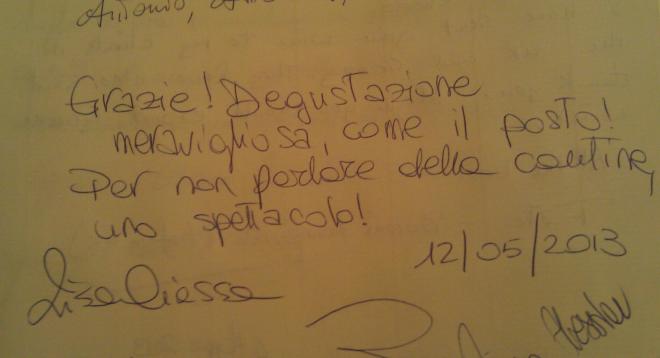 Antonio,
Grazie! Degustazione
meravigliosa, come il posto!
Per non parlare delle cantine,
uno spettacolo!
12/05/2013